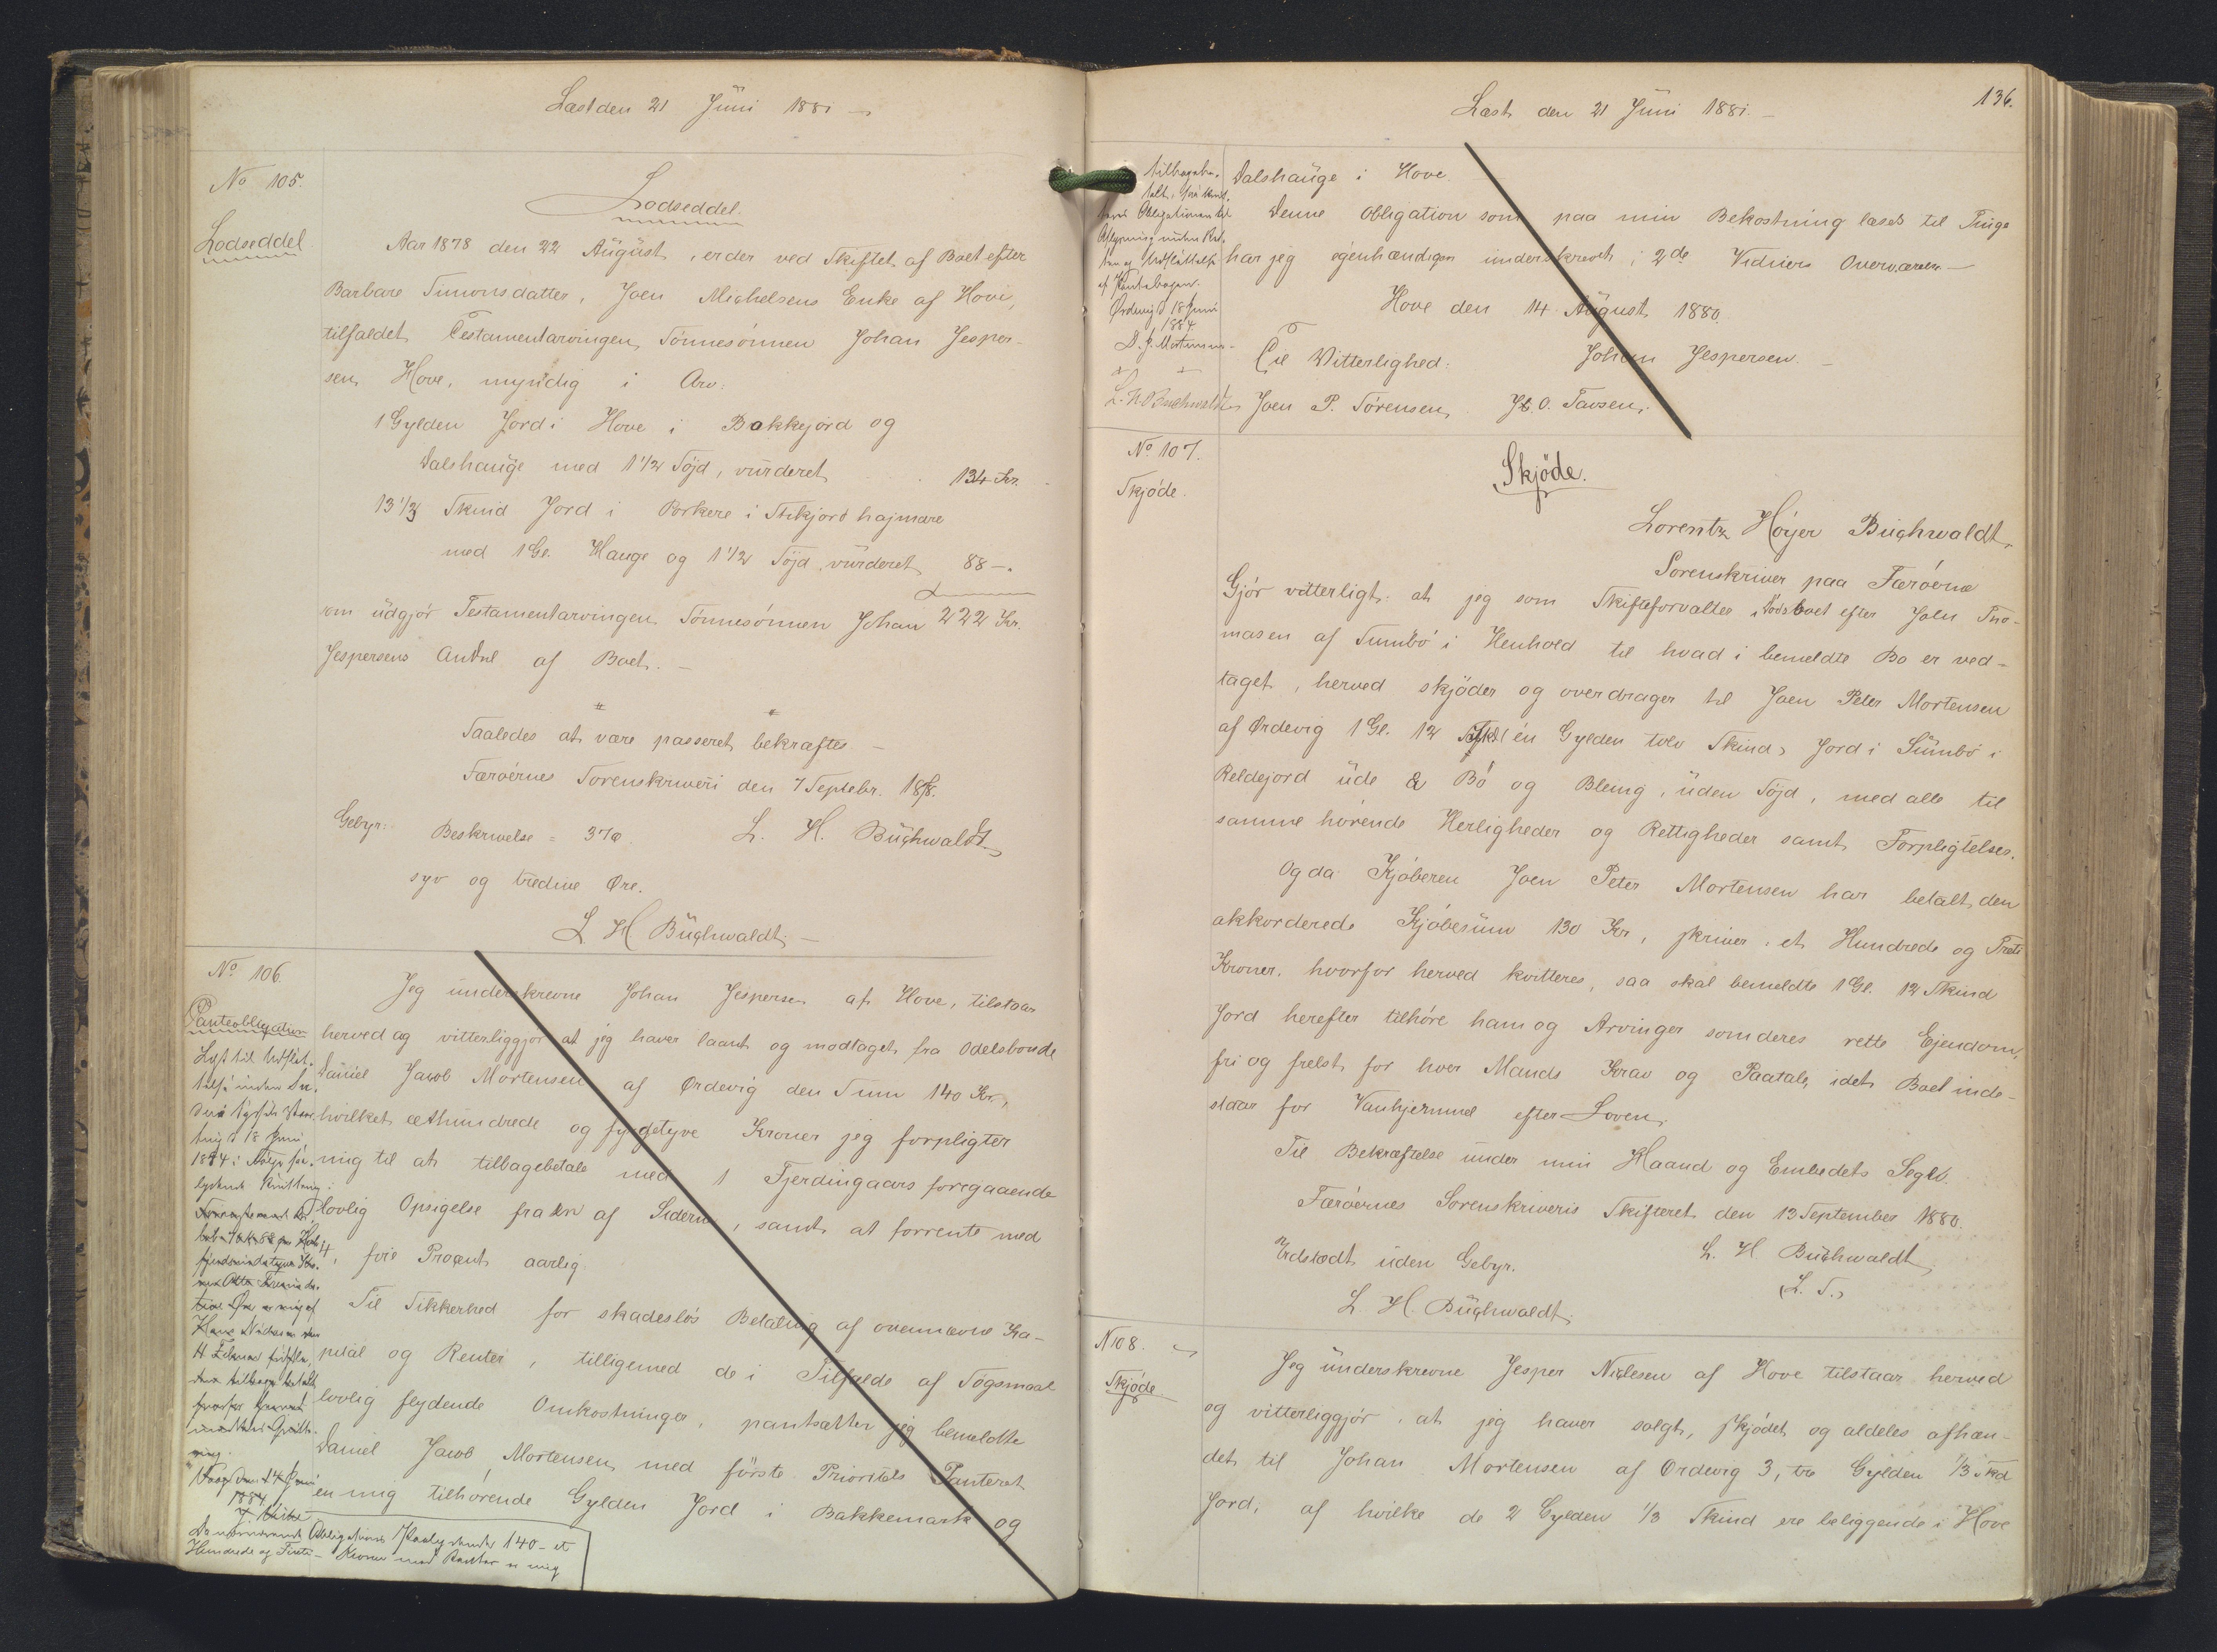 Læst den 21 Juni 1881
No 105.
Lodseddel
Lodseddel.
Aar 1878 den 22 August, er der ved Skiftet af Boet efter
Barbare Simonsdatter, Joen Michelsens Enke af Hove,
tilfaldet Testamentarvingen Sønnesønnen Johan Jesper-
sen Hove, myndig i Arv:
1 Gylden Jord i Hove i Bakkejord og
Dalshauge med 1 1/2 Søjd, vurderet 134 Kr.
13 1/3 Skind Jord i Porkere i Stikjord hajmare
med 1 Gl. Hauge og 1 1/2 Søjd vurderet 88 -.
som udgjør Testamentarvingen Sønnesønnen Johan 222 Kr.
Jespersens Andel af Boet. -
Saaledes at være passeret bekræftes -
Færøernes Sorenskriveri den 7 Septebr. 1878.
Gebyr: Beskrivelse = 37 Ø. L. H. Buchwaldt
syv og tredive Øre.
L H Buchwaldt. -
No 106.
Panteobligation
Jeg underskrevne Johan Jespersen af Hove, tilstaar
herved og vitterliggjør at jeg haver laant og modtaget fra Odelsbonde
Daniel Jacob Mortensen af Ørdevig den Sum 140 Kr.,
hvilket et Hundrede og fyrgetyve Kroner jeg forpligter
mig til at tilbagebetale med 1 Fjerdingaars foregaaende
lovlig Opsigelse fra en af Siderne, samt at forrente med
4, fire Procent aarlig.
Til Sikkerhed for skadesløs Betaling af ovennævnte Ka-
pital og Renter, tilligemed de i Tilfælde af Søgsmaal
lovlig flydende Omkostninger, pantsætter jeg bemeldte
Daniel Jacob Mortensen med første Prioritets Panteret
en mig tilhørende Gylden Jord i Bakkemark og
Lyst til Udslet-
telse inden
18 Juni
1884 i Følge saa-
lydende Kvittering:
Obligations Paalydende 140 - et
Hundrede og Firti - Kroner med Renter er mig
Læst den 21 Juni 1881. -
136.
tilbagebe-
talt,
Obligationen til
Aflysning
og Udslettelse
af Pantebogen.
Ørdevig d 18 Juni
1884.
D. J. Mortensen
L. H. Buchwaldt
Dalshauge i Hove.
Denne Obligation som paa min Bekostning læses til Tinge
har jeg egenhændigen underskrevet i 2de Vidners Overværelse -
Hove den 14 August 1880.
Til Vitterlighed: Johan Jespersen. -
Joen P. Sørensen. J. O. Tavsen.
No 107.
Skjøde.
Skjøde.
Lorentz Høyer Buchwaldt,
Sorenskriver paa Færøerne
Gjør vitterligt: at jeg som Skifteforvalter i Dødsboet efter Joen Tho-
masen af Sumbø i Henhold til hvad i bemeldte Bo er ved-
taget, herved skjøder og overdrager til Joen Peter Mortensen
af Ørdevig 1 Gl. 12 Skd. én Gylden tolv Skind, Jord i Sumbø i
Reldejord ude & Bø og Bleing, uden Søjd, med alle til
samme hørende Herligheder og Rettigheder samt Forpligtelser.
Og da Kjøberen Joen Peter Mortensen har betalt den
akkorderede Kjøbesum 130 Kr, skriver et Hundrede og Treti
Kroner, hvorfor herved kvitteres, saa skal bemeldte 1 Gl. 12 Skind
Jord herefter tilhøre ham og Arvinger som deres rette Ejendom,
fri og frelst for hver Mands Krav og Paatale, idet Boet inde-
staar for Vanhjemmel efter Loven.
Til Bekræftelse under min Haand og Embedets Segl.
Færøernes Sorenskriveris Skifteret den 13 September 1880.
Udstedt uden Gebyr. L. H. Buchwaldt
L. H. Buchwaldt. (L. S.)
N 108.
Skjøde
Jeg underskrevne Jesper Nielsen af Hove tilstaar herved
og vitterliggjør, at jeg haver solgt, skjødet og aldeles afhæn-
det til Johan Mortensen af Ørdevig 3, tre Gylden 1/3 Skd
Jord, af hvilke de 2 Gylden 1/3 Skind ere beliggende i Hove